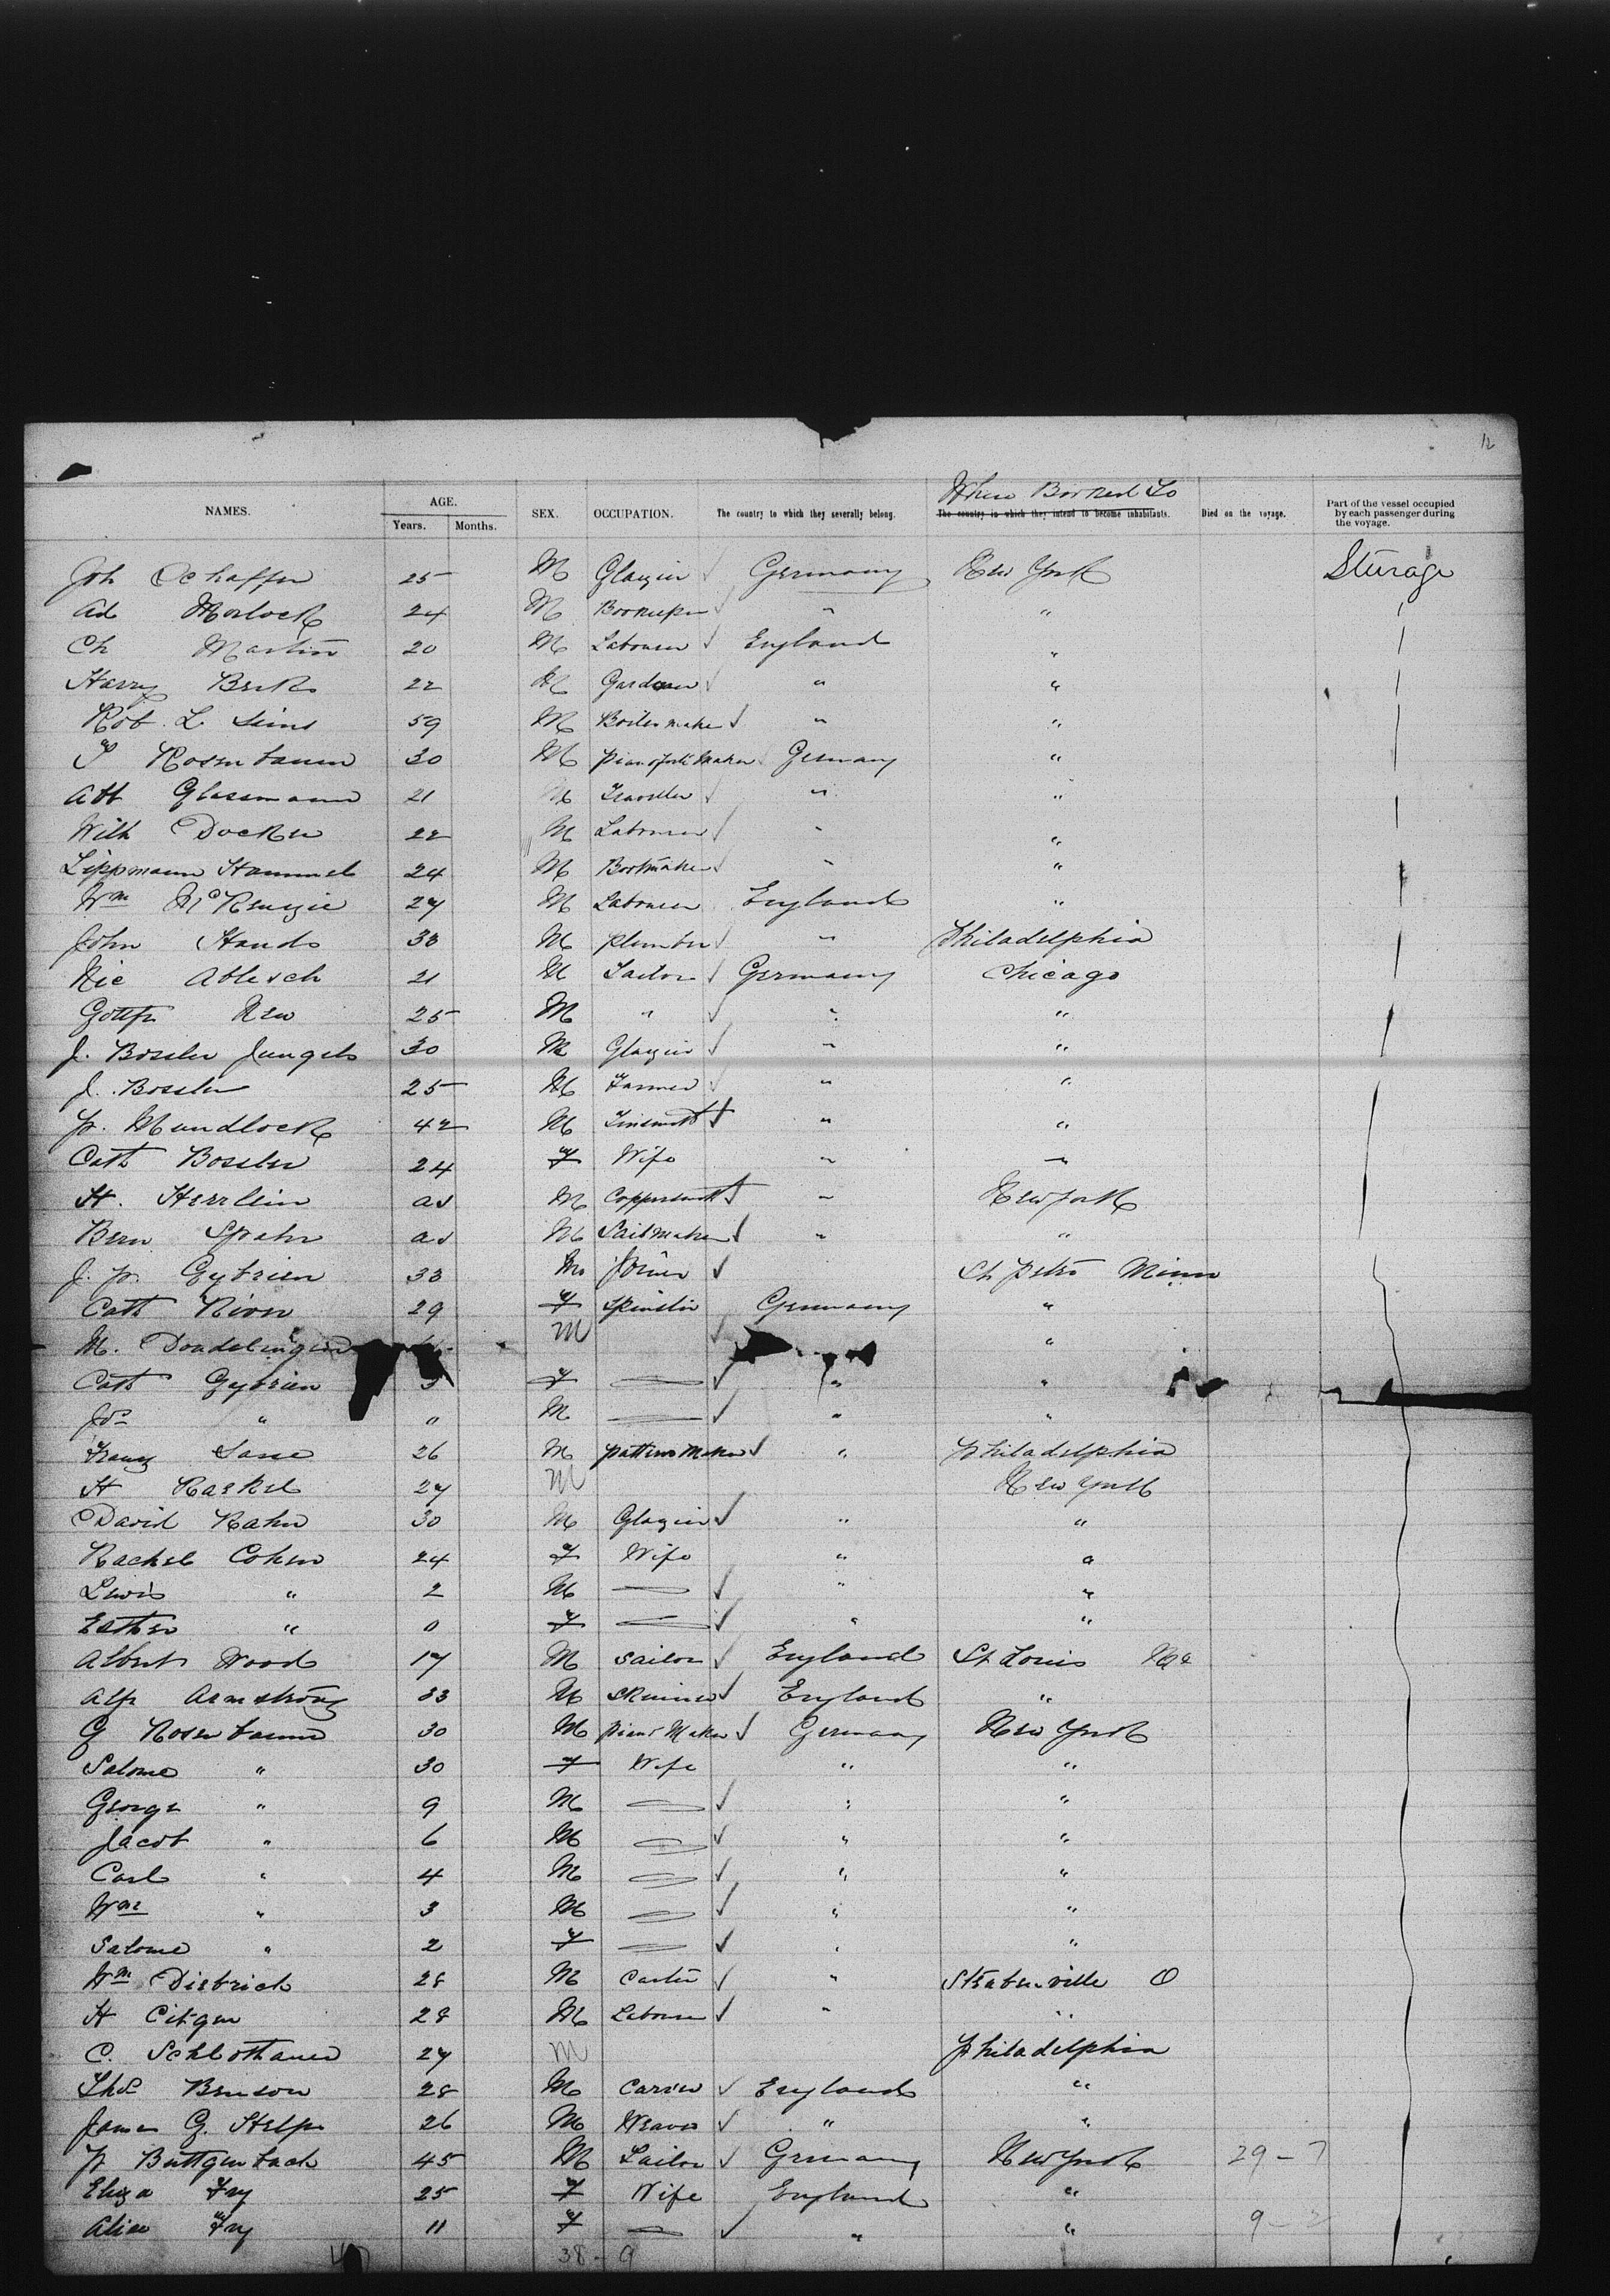 12
Where Booked To
NAMES. AGE. SEX. OCCUPATION. The country to which they severally belong. The country in which they intend to become inhabitants. Died on the voyage. Part of the vessel occupied by each passenger during the voyage.
Years. Months.
Joh Schaffer 25 M Glazier ✓ Germany New York Sturage
Ad Morlock 24 M Bookeeper ✓ " "
Ch Martin 20 M Labourer ✓ England "
Harry Berks 22 M Gardener ✓ " "
Rob. L Sims 59 M Boilermaker ✓ " "
Rosenbaum 30 M Pianoforte Maker Germany "
Abt Glassmann 21 M Traveller ✓ " "
Wilh Docker 22 M Labourer ✓ " "
Lippmann Hammel 24 M Bootmaker ✓ " "
Wm McKenzie 27 M Labourer England "
John Hands 38 M Plumber ✓ " Philadelphia
Nic Ablesch 21 M Tailor ✓ Germany Chicago
Gottfr New 25 M " ✓ " "
J. Bossler Jungels 30 M Glazier ✓ " "
J. Bossler 25 M Farmer ✓ " "
P. Mundlock 42 M Tinsmith ✓ " "
Cath Bossler 24 F Wife " "
H. Herrlein ad M Coppersmith ✓ " New York
Bern Spahn ad M Sailmaker ✓ " "
J. P. Gybrien 33 M Joiner ✓ St Peter Minn
Cath Nivon 29 F Spinster Germany "
M. Dondelinger M ✓ "
Cath Gybrien F — ✓ " "
Jos " " M — ✓ " "
Franz Sasse 26 M Pattern Maker ✓ " Philadelphia
H Raskel 27 M New York
David Kahn 30 M Glazier ✓ " "
Rachel Cohen 24 F Wife " "
Lewis " 2 M — ✓ " "
Esther " 0 F — ✓ " "
Albert Wood 17 M Sailor ✓ England St Louis
Alf Armstrong 33 M Skinner ✓ England "
G Rosenbaum 30 M Piano Maker ✓ Germany New York
Salome " 30 F Wife " "
George " 9 M — ✓ " "
Jacob " 6 M — ✓ " "
Carl " 4 M — ✓ " "
Wm " 3 M — ✓ " "
Salome " 2 F — ✓ " "
Wm Dietrich 28 M Carter ✓ " Steubenville O
H Citgen 28 M Labourer ✓ " "
C. Schlothauer 27 M Philadelphia
Thos Benson 28 M Carver ✓ England "
James G. Help 26 M Weaver ✓ " "
P Büttgenbach 45 M Tailor ✓ Germany New York 29 - 7
Eliza Fry 25 F Wife England "
Alice Fry 11 F — ✓ " " 9 - 2
38 - 9